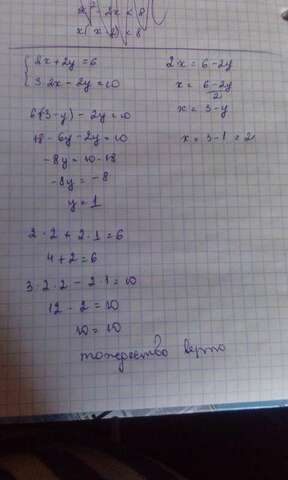 x² - 2x < 8
x(x-2) < 8
{ 2x+2y=6
3·2x-2y=10
2x=6-2y
x = 6-2y / 2
x = 3-y
6(3-y)-2y=10
18-6y-2y=10
-8y=10-18
-8y=-8
y=1
x=3-1=2
2·2+2·1=6
4+2=6
3·2·2-2·1=10
12-2=10
10=10
тождество верно